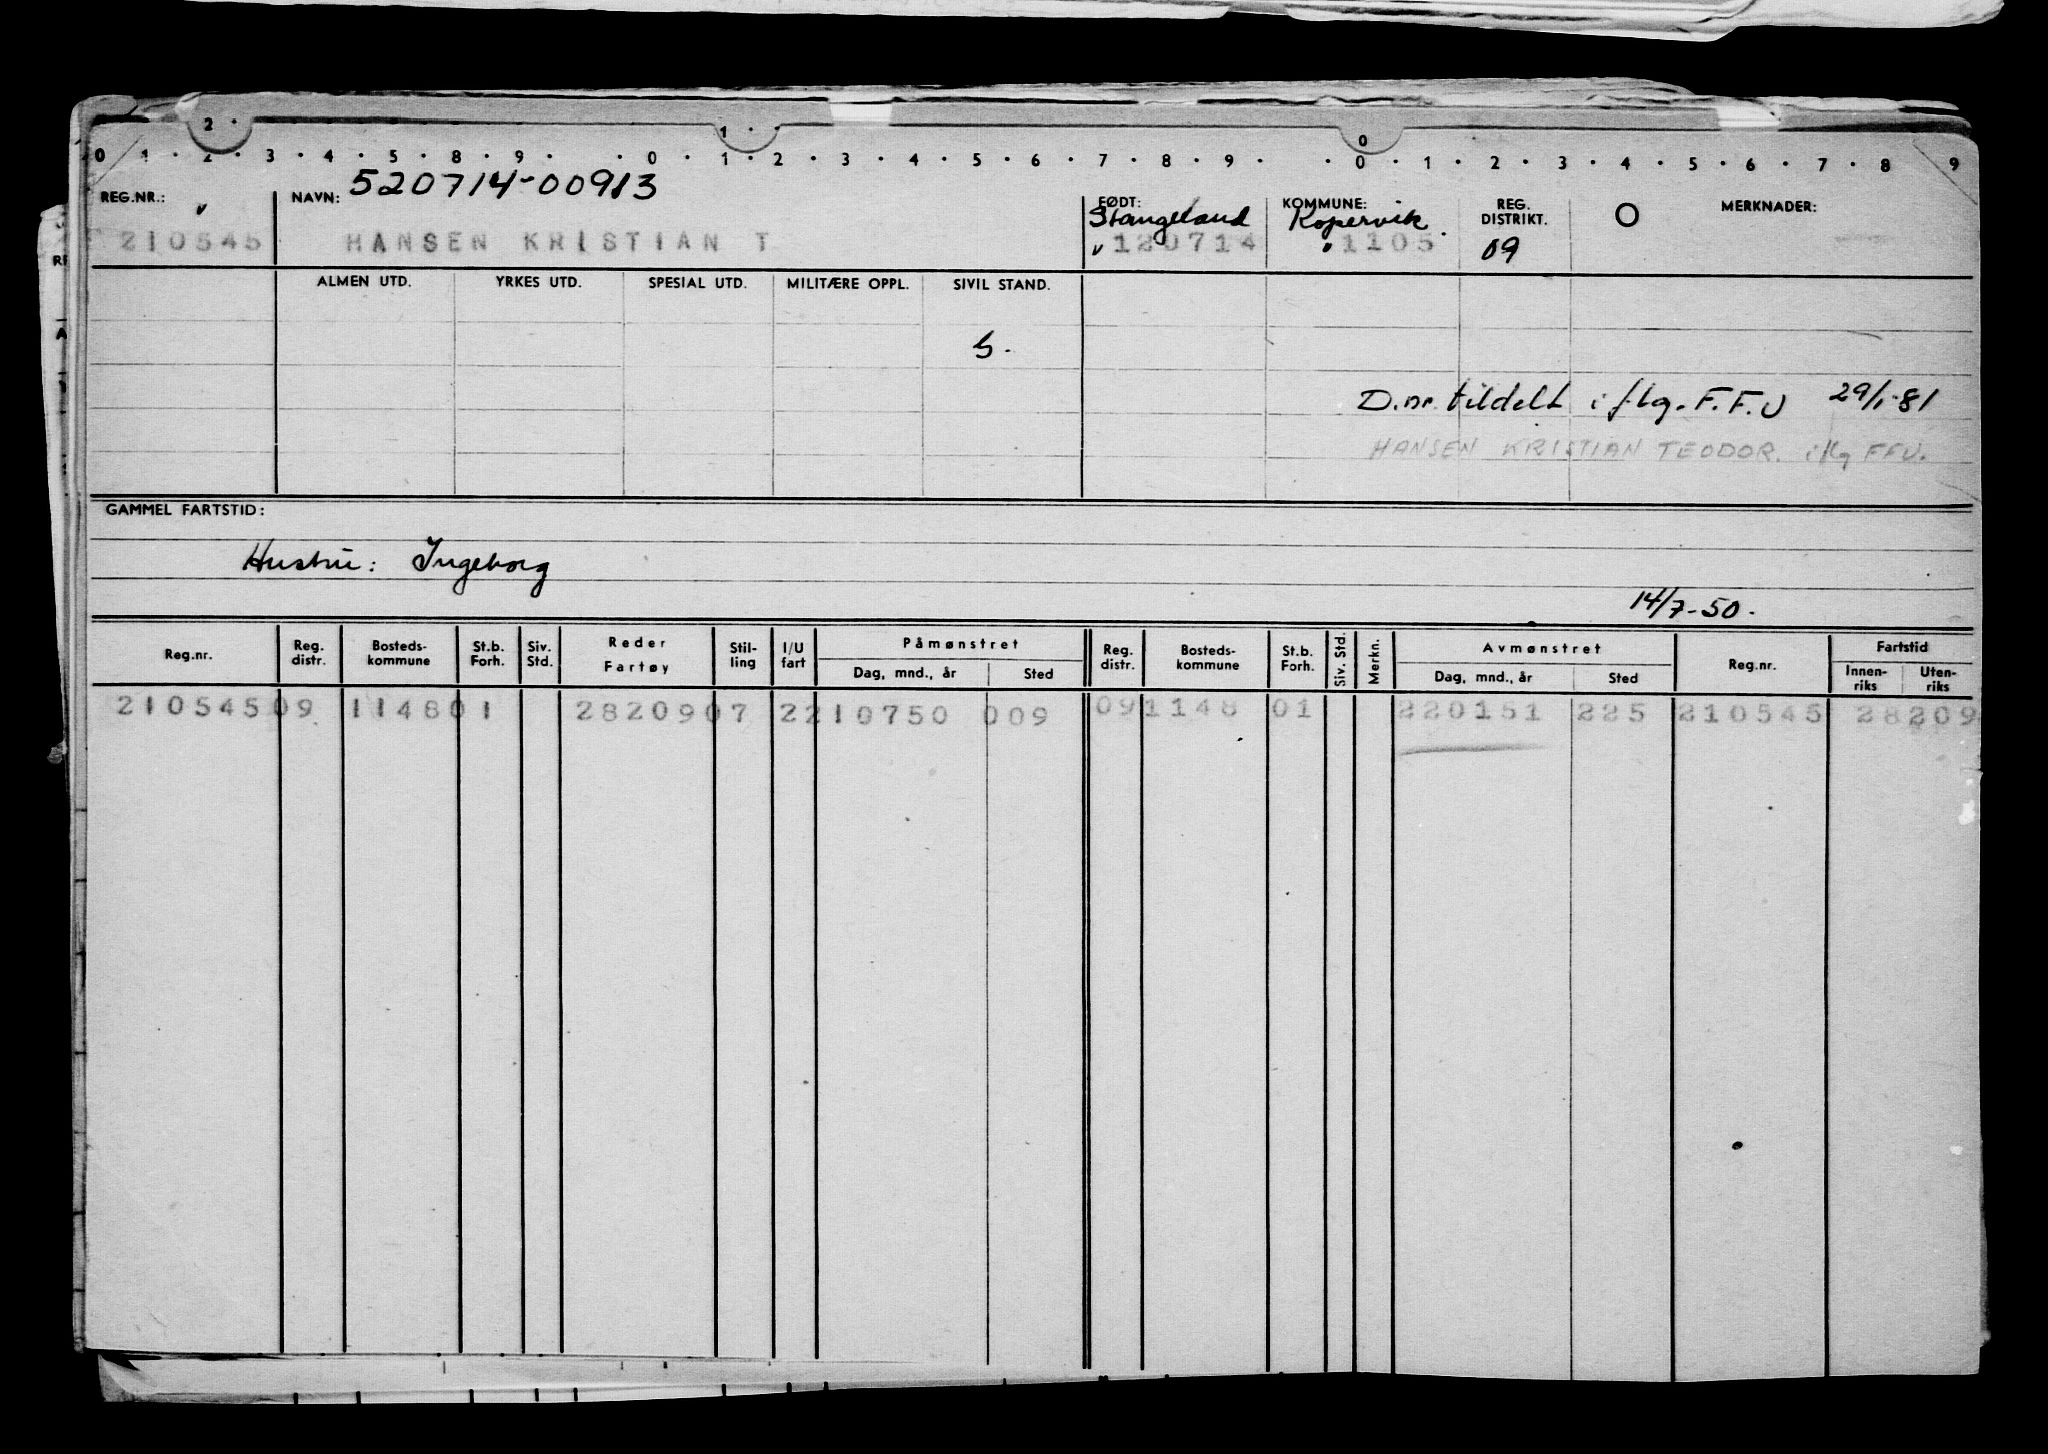 2 · 1 · · 0
0 1 · 2 · 3 · 4 · 5 · 8 · 9 · · 0 · 1 · 2 · 3 · 4 · 5 · 6 · 7 · 8 · 9 · · 0 · 1 · 2 · 3 · 4 · 5 · 6 · 7 · 8 9
REG.NR.: NAVN: 520714-00913 FØDT: Stangeland KOMMUNE: Kopervik. REG. DISTRIKT. O MERKNADER:
210545 HANSEN KRISTIAN T 120714 1105 09
ALMEN UTD. YRKES UTD. SPESIAL UTD. MILITÆRE OPPL. SIVIL STAND.
S.
D.nr. tildelt i flg. F.F.U 29/1-81
HANSEN KRISTIAN TEODOR. iflg FFU.
GAMMEL FARTSTID:
Hustru: Ingeborg
14/7-50.
Reg.nr. Reg. distr. Bosteds-kommune St.b. Forh. Siv. Std. Reder Fartøy Stil-ling I/U fart Påmønstret Reg. distr. Bosteds-kommune St.b. Forh. Siv. Std. Merkn. Avmønstret Reg.nr. Fartstid
Dag, mnd., år Sted Dag, mnd., år Sted Innen-riks Uten-riks
210545 09 1148 01 28209 07 2 210750 009 09 1148 01 220151 225 210545 28209